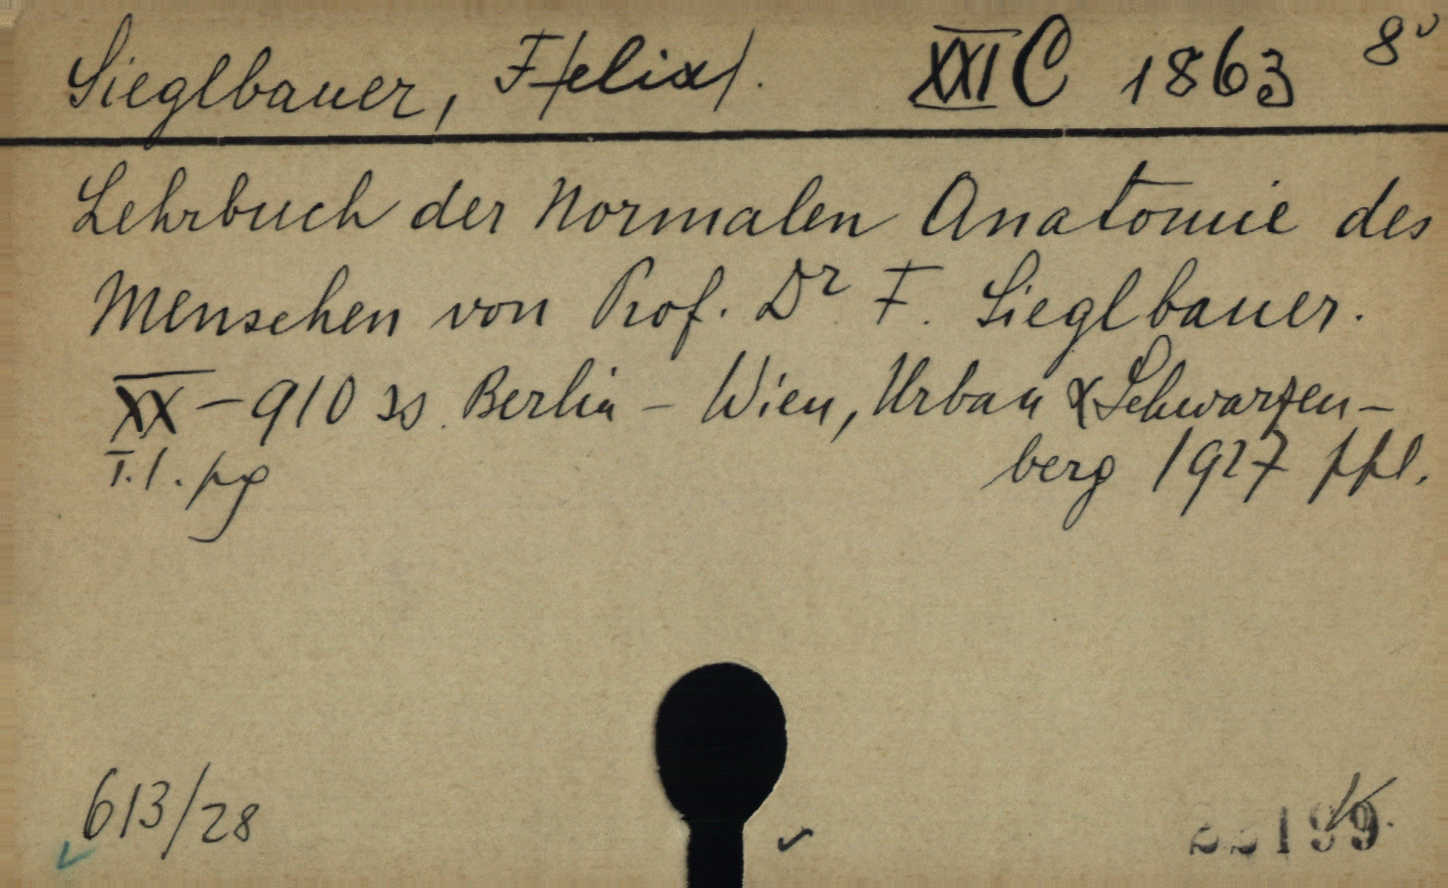 Sieglbauer, F/elix/. XXI C 1863 8º
Lehrbuch der Normalen Anatomie des
Menschen von Prof. Dr F. Sieglbauer.
XX-910 ss. Berlin - Wien, Urban & Schwarzen-
I.1. pg berg 1927 ppl.
613/28
22199